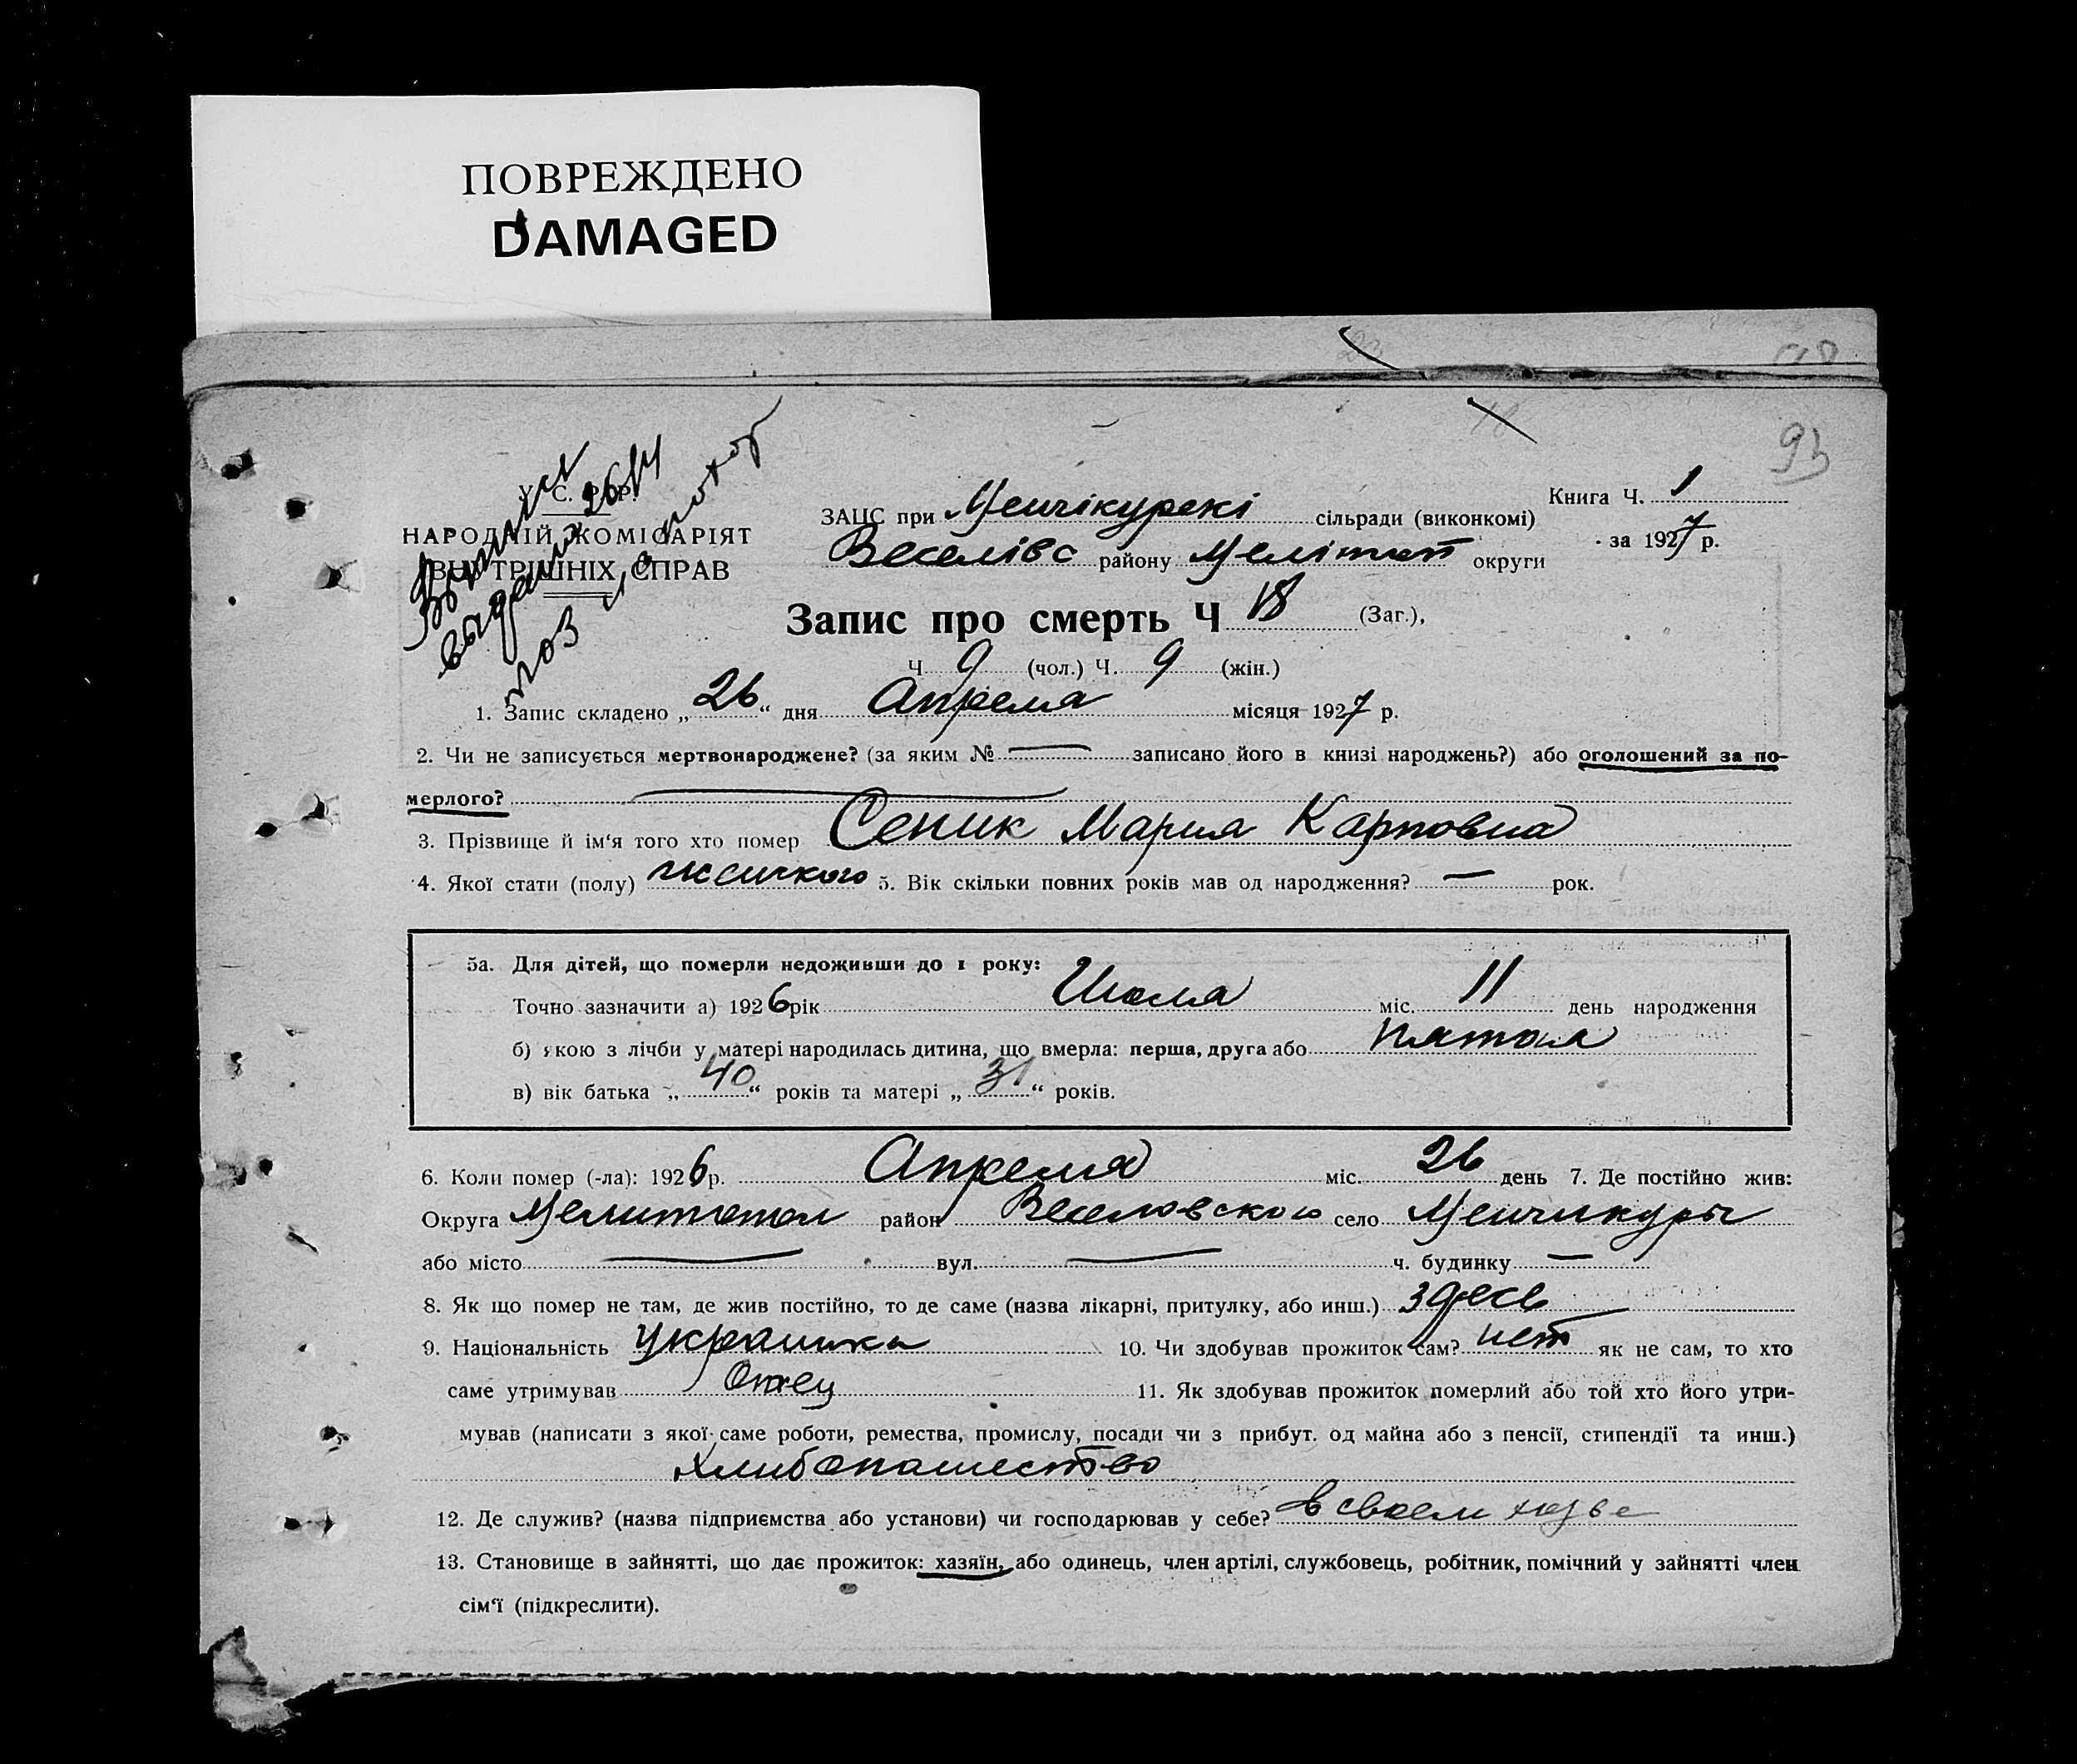 ПОВРЕЖДЕНО
DAMAGED
93
У. С. Р. Р.
НАРОДНІЙ КОМІСАРІЯТ
ВНУТРІШНІХ СПРАВ
Выпись
выдана 26/IV
ЗАЦС при Менчікурскі сільради (виконкомі)
Веселівс району Мелітоп округи
Книга Ч. 1
за 1927 р.
Запис про смерть Ч 18 (Заг.),
Ч 9 (чол.) Ч. 9 (жін.)
1. Запис складено „26“ дня Апреля місяця 1927 р.
2. Чи не записується мертвонароджене? (за яким № — записано його в книзі народжень?) або оголошений за по-
мерлого? —
3. Прізвище й ім‘я того хто помер Сеник Мария Карповна
4. Якої стати (полу) женского 5. Вік скільки повних років мав од народження? — рок.
5а. Для дітей, що померли недоживши до 1 року:
Точно зазначити а) 1926 рік Июля міс. 11 день народження
б) якою з лічби у матері народилась дитина, що вмерла: перша, друга або пятая
в) вік батька „40“ років та матері „31“ років.
6. Коли помер (-ла): 1926 р. Апреля міс. 26 день 7. Де постійно жив:
Округа Мелитопол район Веселовского село Менчикуры
або місто — вул. — ч. будинку —
8. Як що помер не там, де жив постійно, то де саме (назва лікарні, притулку, або инш.) здесь
9. Національність украинка 10. Чи здобував прожиток сам? нет як не сам, то хто
саме утримував Отец 11. Як здобував прожиток померлий або той хто його утри-
мував (написати з якої саме роботи, ремества, промислу, посади чи з прибут. од майна або з пенсії, стипендії та инш.)
хлибопашество
12. Де служив? (назва підприємства або установи) чи господарював у себе? в своем хозве
13. Становище в зайнятті, що дає прожиток: хазяїн, або одинець, член артілі, службовець, робітник, помічний у зайнятті член
сім‘ї (підкреслити).